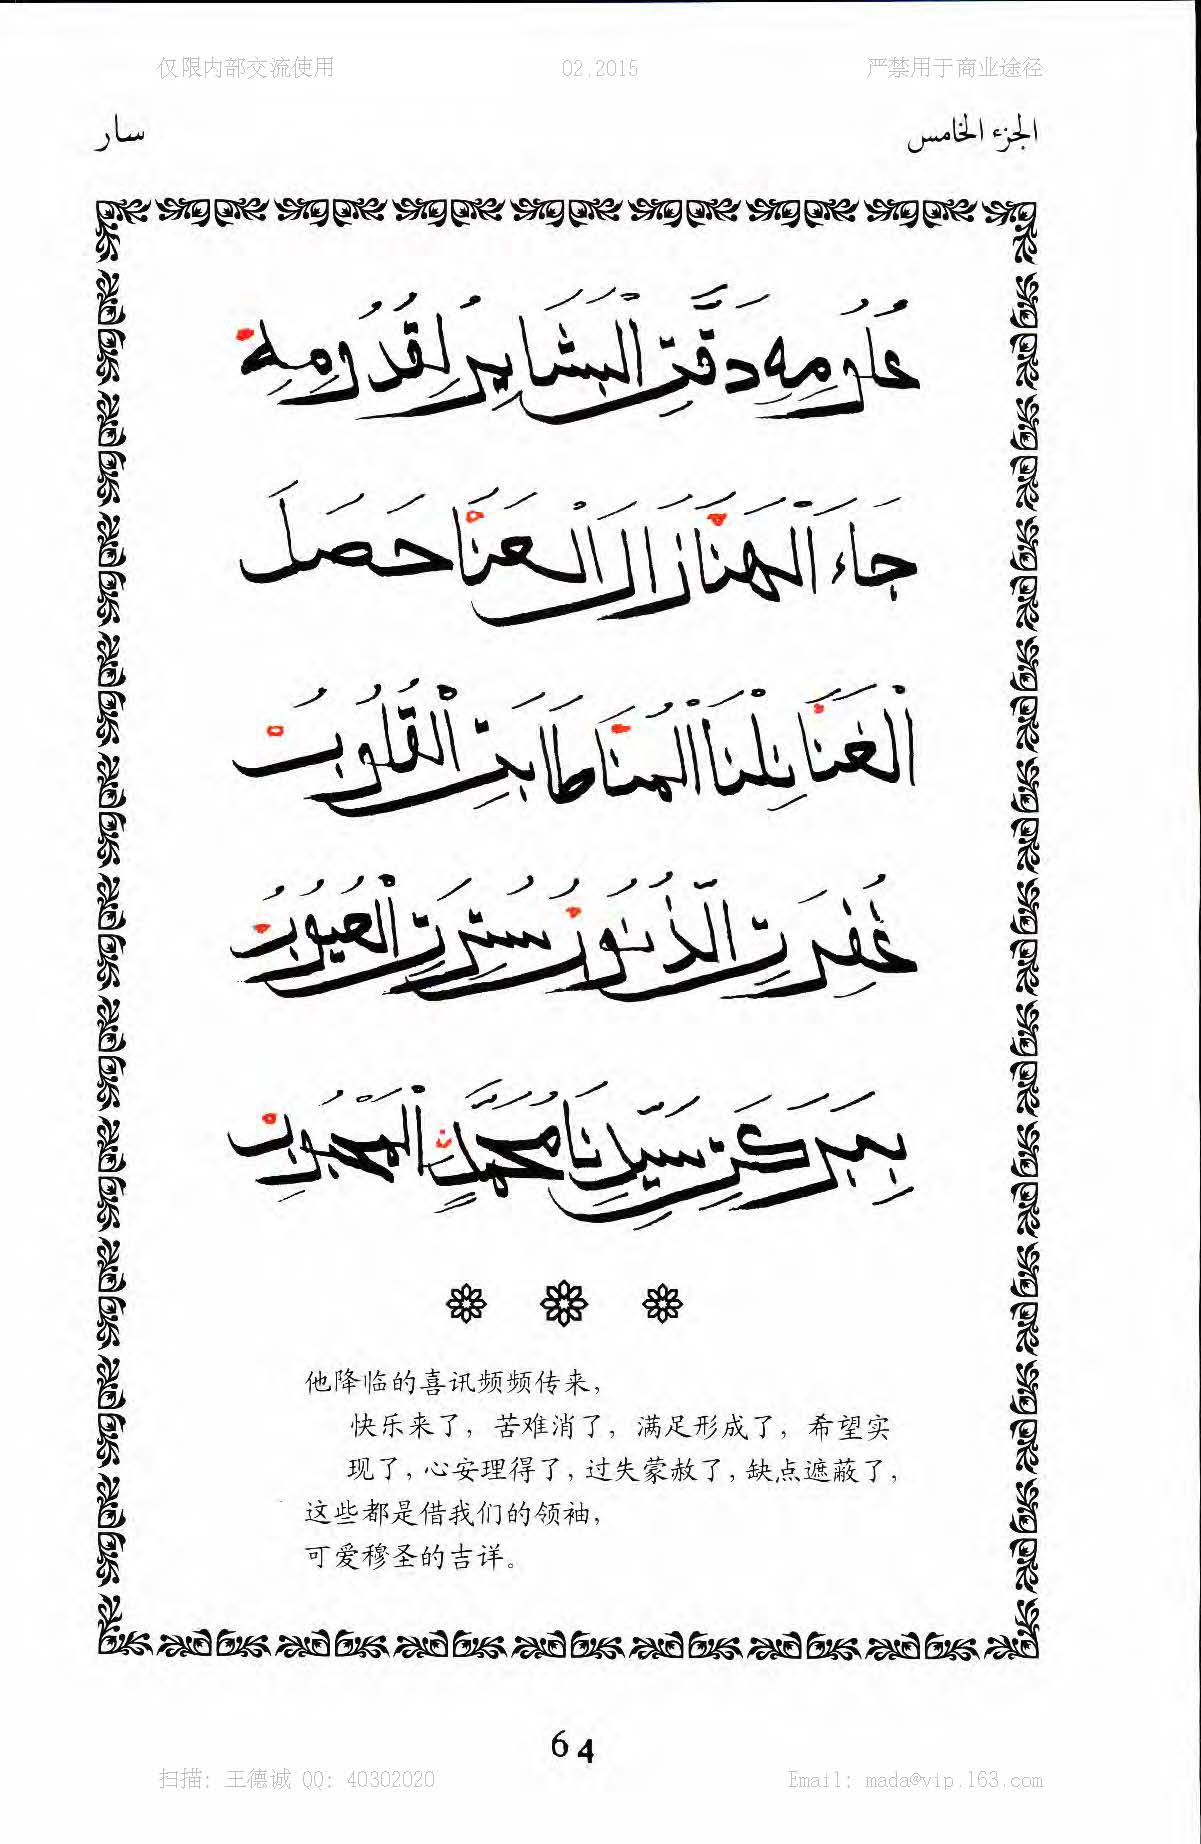 仅限内部交流使用 02.2015 严禁用于商业途径
الجزء الخامس سار
عُلُومِهِ دَقَّتِ الْبَشَايِرُ لِقُدُومِهِ
جَاءَ الْهَنَا زَالَ الْعَنَا حَصَلَ
الْغَنَا نِلْنَا الْمُنَا طَابَتِ الْقُلُوبُ
غُفِرَتِ الذُّنُوبُ سُتِرَتِ الْعُيُوبُ
بِبَرَكَتِ سَيِّدِنَا مُحَمَّدٍ الْمَحْبُوبِ
他降临的喜讯频频传来，
快乐来了，苦难消了，满足形成了，希望实
现了，心安理得了，过失蒙赦了，缺点遮蔽了，
这些都是借我们的领袖，
可爱穆圣的吉详。
64
扫描: 王德诚 QQ: 40302020 Email: mada@vip.163.com